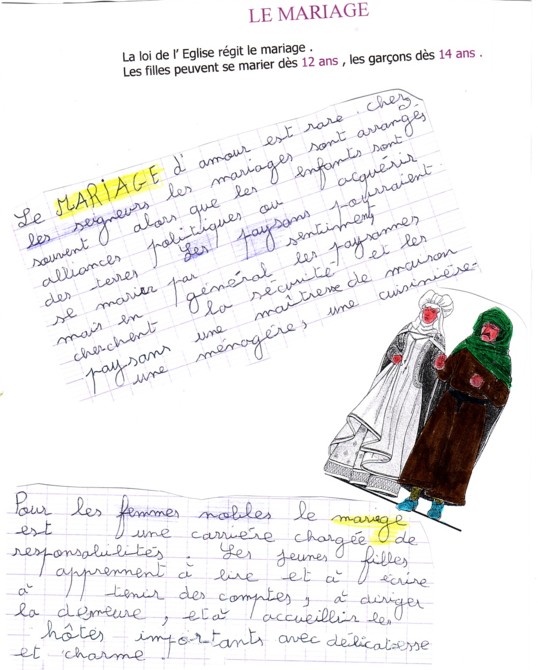 LE MARIAGE
La loi de l' Eglise régit le mariage .
Les filles peuvent se marier dès 12 ans , les garçons dès 14 ans .
Le MARIAGE d'amour est rare. chez
les seigneurs les mariages sont arrangés
souvent alors que les enfants sont
alliances politiques ou acquérir
des terres. Les paysans pourraient
se marier par sentiment
mais en général les paysannes
cherchent la sécurité et les
paysans une maîtresse de maison
une ménagère, une cuisinière.
Pour les femmes nobles le mariage
est une carrière chargée de
responsabilités. Les jeunes filles
apprennent à lire et à écrire
à tenir des comptes, à diriger
la demeure, et à accueillir les
hôtes importants avec délicatesse
et charme.